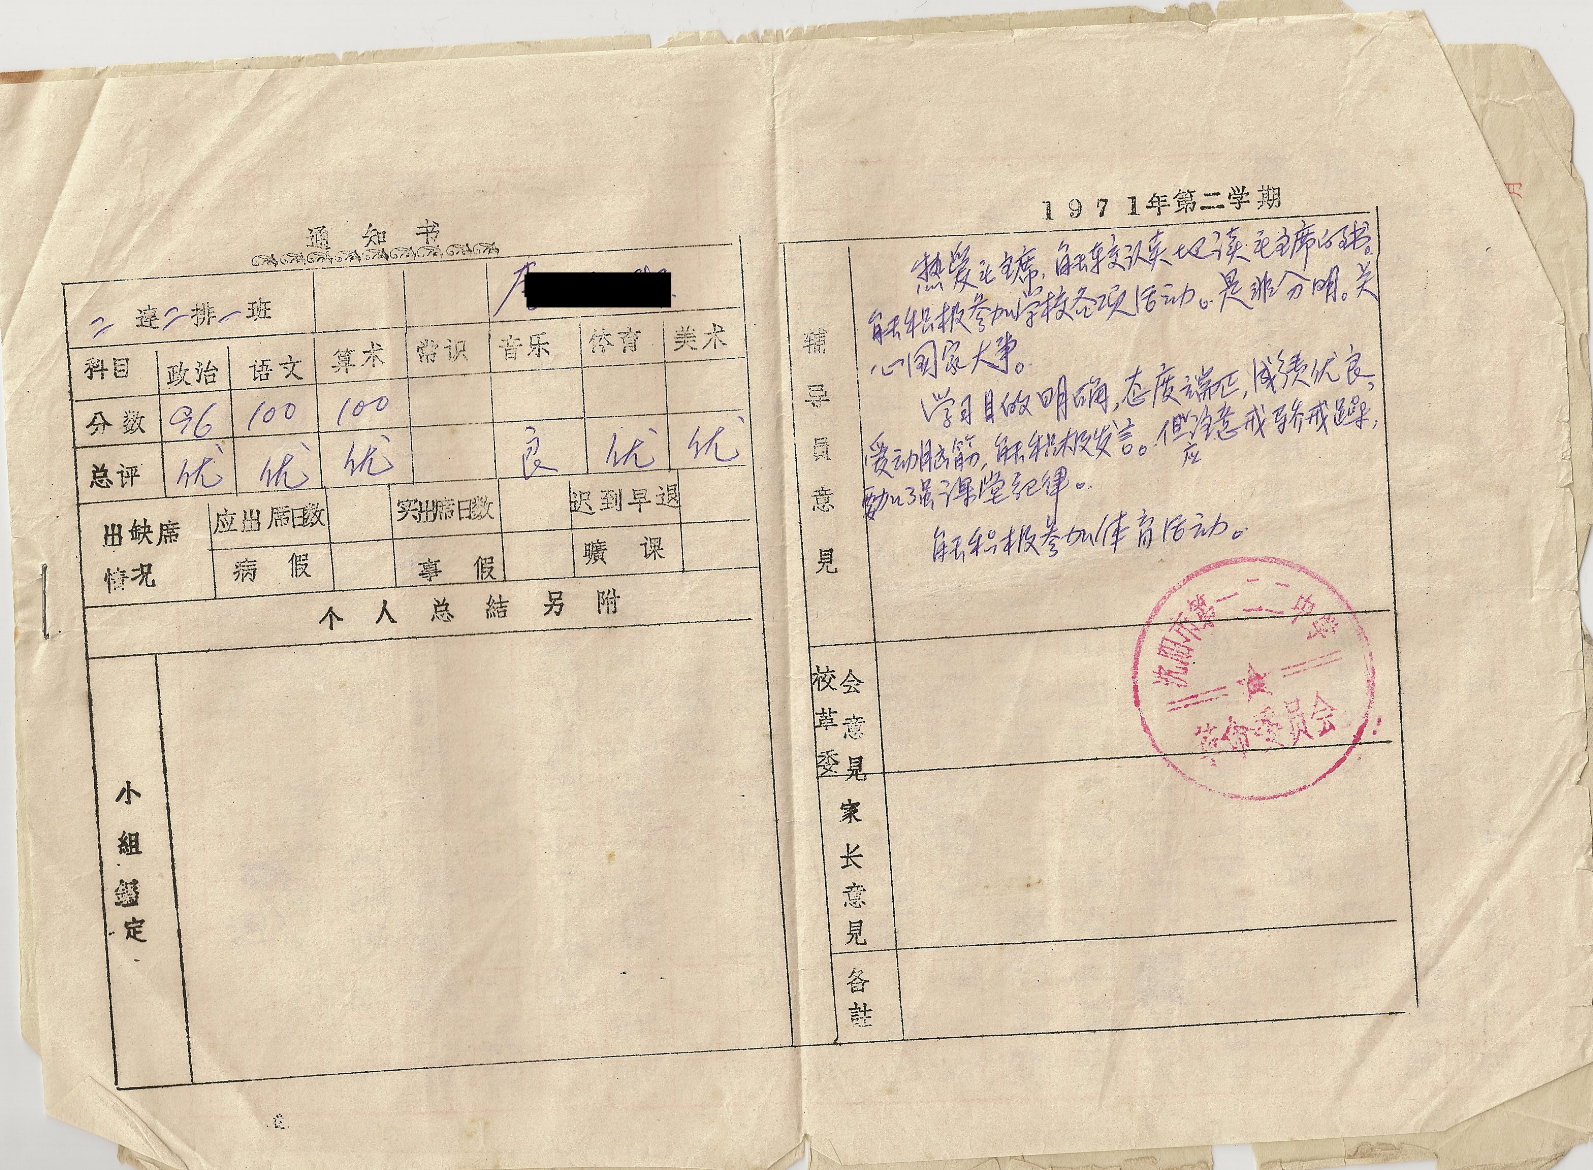 通知书
二连二排一班
科目 政治 语文 算术 常识 音乐 体育 美术
分数 96 100 100
总评 优 优 优 良 优 优
出缺席情况 应出席日数 实出席日数 迟到早退
病假 事假 曠课
个人总結另附
小組鑑定
1971年第二学期
辅导员意見
热爱毛主席,能较认真地读毛主席的书。
能积极参加学校各项活动。是非分明。关
心国家大事。
学习目的明确,态度端正,成绩优良,
爱动脑筋,能积极发言。但应注意戒骄戒躁,
加强课堂纪律。
能积极参加体育活动。
校革委会意見
沈阳市第一二二中学
革命委员会
家长意見
备註